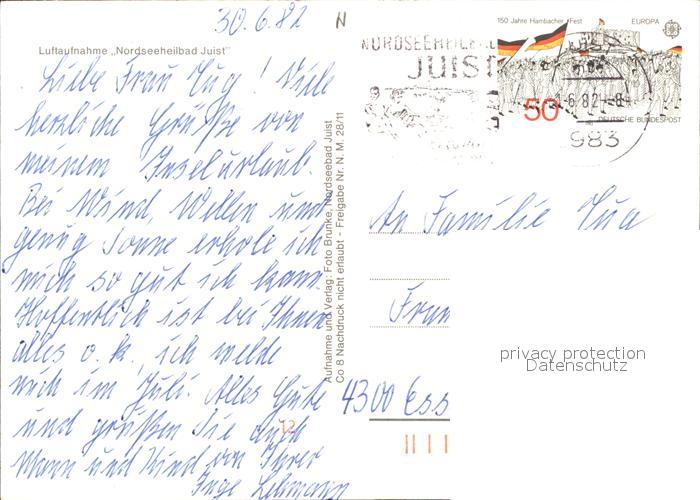 30.6.82
N
Luftaufnahme „Nordseeheilbad Juist"
Liebe Frau Zug! Viele
herzliche Grüße von
meinem Inselurlaub.
Bei Wind, Wellen und
genug Sonne erhole ich
mich so gut ich kann.
Hoffentlich ist bei Ihnen
alles o.k. ich melde
mich im Juli. Alles Gute
und grüßen Sie auch
Mann und Kind von Ihrer
Inge Lehmann
Aufnahme und Verlag: Foto Brunke, Nordseebad Juist
Co 8 Nachdruck nicht erlaubt - Freigabe Nr. N. M. 28/11
JUIST
150 Jahre Hambacher Fest
EUROPA
50
DEUTSCHE BUNDESPOST
6.82-8
983
An Familie
Fran
4300 Ess
12
privacy protection
Datenschutz